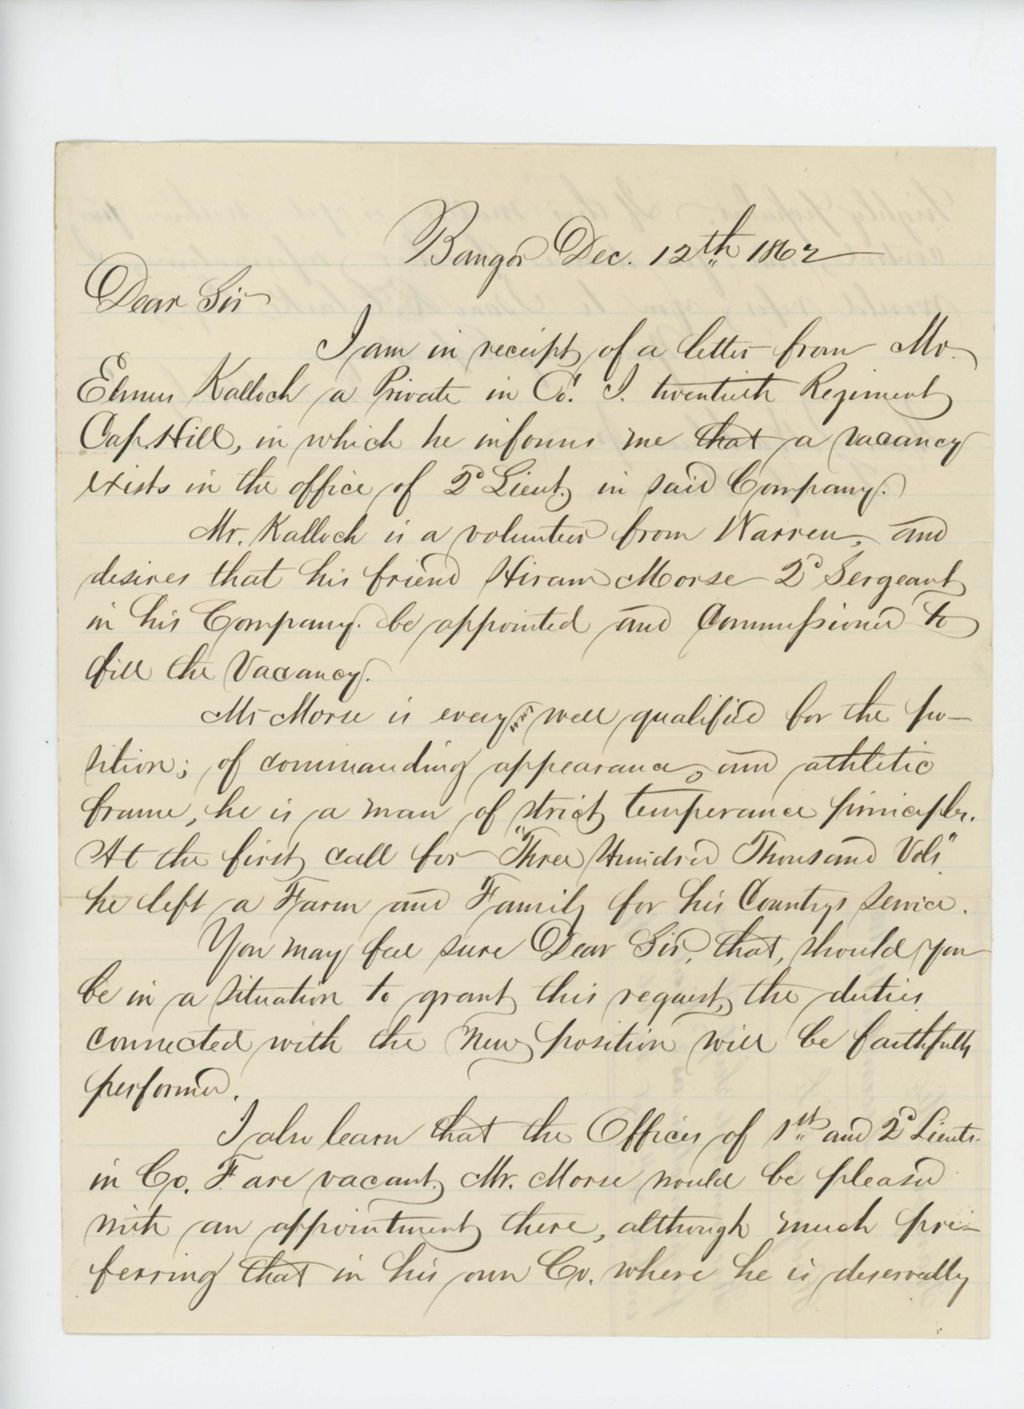 Bangor Dec. 12th 1862
Dear Sir
I am in receipt of a letter from Mr.
Elmus Kalloch a Private in Co. I. twentieth Regiment
Cap. Hill, in which he informs me that a vacancy
exists in the office of 2d Lieut. in said Company.
Mr. Kalloch is a volunteer from Warren, and
desires that his friend Hiram Morse 2d Sergeant
in his Company. be appointed and Commissioned to
fill the Vacancy.
Mr Morse is every way well qualified for the po-
sition; of commanding appearance, and athletic
frame, he is a man of strict temperance principles.
At the first call for "Three Hundred Thousand Vols"
he left a Farm and Family for his Countrys service.
You may feel sure Dear Sir, that, should you
be in a situation to grant this request, the duties
connected with the new position will be faithfully
performed.
I also learn that the Offices of 1st and 2d Lieuts.
in Co. F. are vacant, Mr. Morse would be pleased
with an appointment there, although much pre-
ferring that in his own Co. where he is deservedly